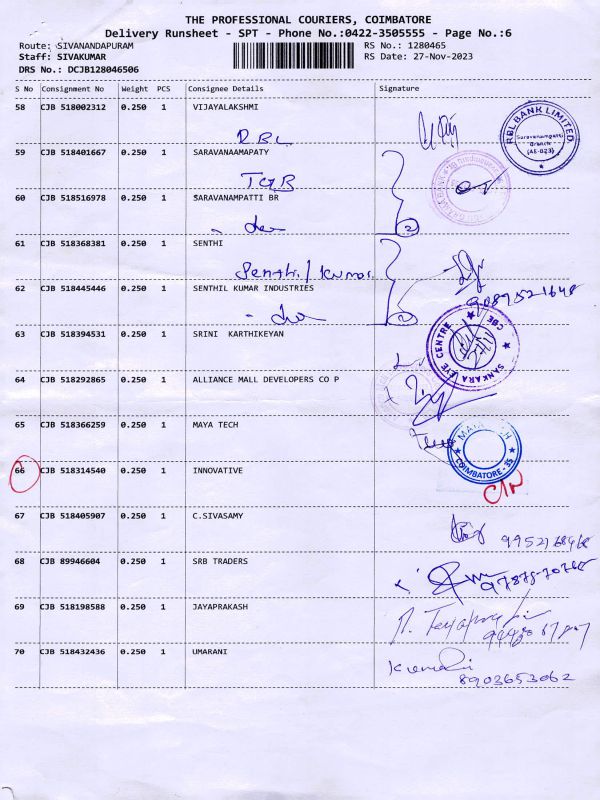 THE PROFESSIONAL COURIERS, COIMBATORE
Delivery Runsheet - SPT - Phone No.:0422-3505555 - Page No.:6
Route: SIVANANDAPURAM
RS No.: 1280465
Staff: SIVAKUMAR
RS Date: 27-Nov-2023
DRS No.: DCJB128046506
S No Consignment No Weight PCS Consignee Details Signature
58 CJB 518002312 0.250 1 VIJAYALAKSHMI
RBL
RBL BANK LIMITED
Saravanampatti
Branch
(AE-023)
59 CJB 518401667 0.250 1 SARAVANAAMAPATY
TGB
60 CJB 518516978 0.250 1 SARAVANAMPATTI BR
2
61 CJB 518368381 0.250 1 SENTHI
Senthil Kumar
62 CJB 518445446 0.250 1 SENTHIL KUMAR INDUSTRIES
2
63 CJB 518394531 0.250 1 SRINI KARTHIKEYAN
SANKARA EYE CENTRE CBE
64 CJB 518292865 0.250 1 ALLIANCE MALL DEVELOPERS CO P
65 CJB 518366259 0.250 1 MAYA TECH
COIMBATORE - 35
66 CJB 518314540 0.250 1 INNOVATIVE
C/N
67 CJB 518405907 0.250 1 C.SIVASAMY
68 CJB 89946604 0.250 1 SRB TRADERS
69 CJB 518198588 0.250 1 JAYAPRAKASH
70 CJB 518432436 0.250 1 UMARANI
8903653062